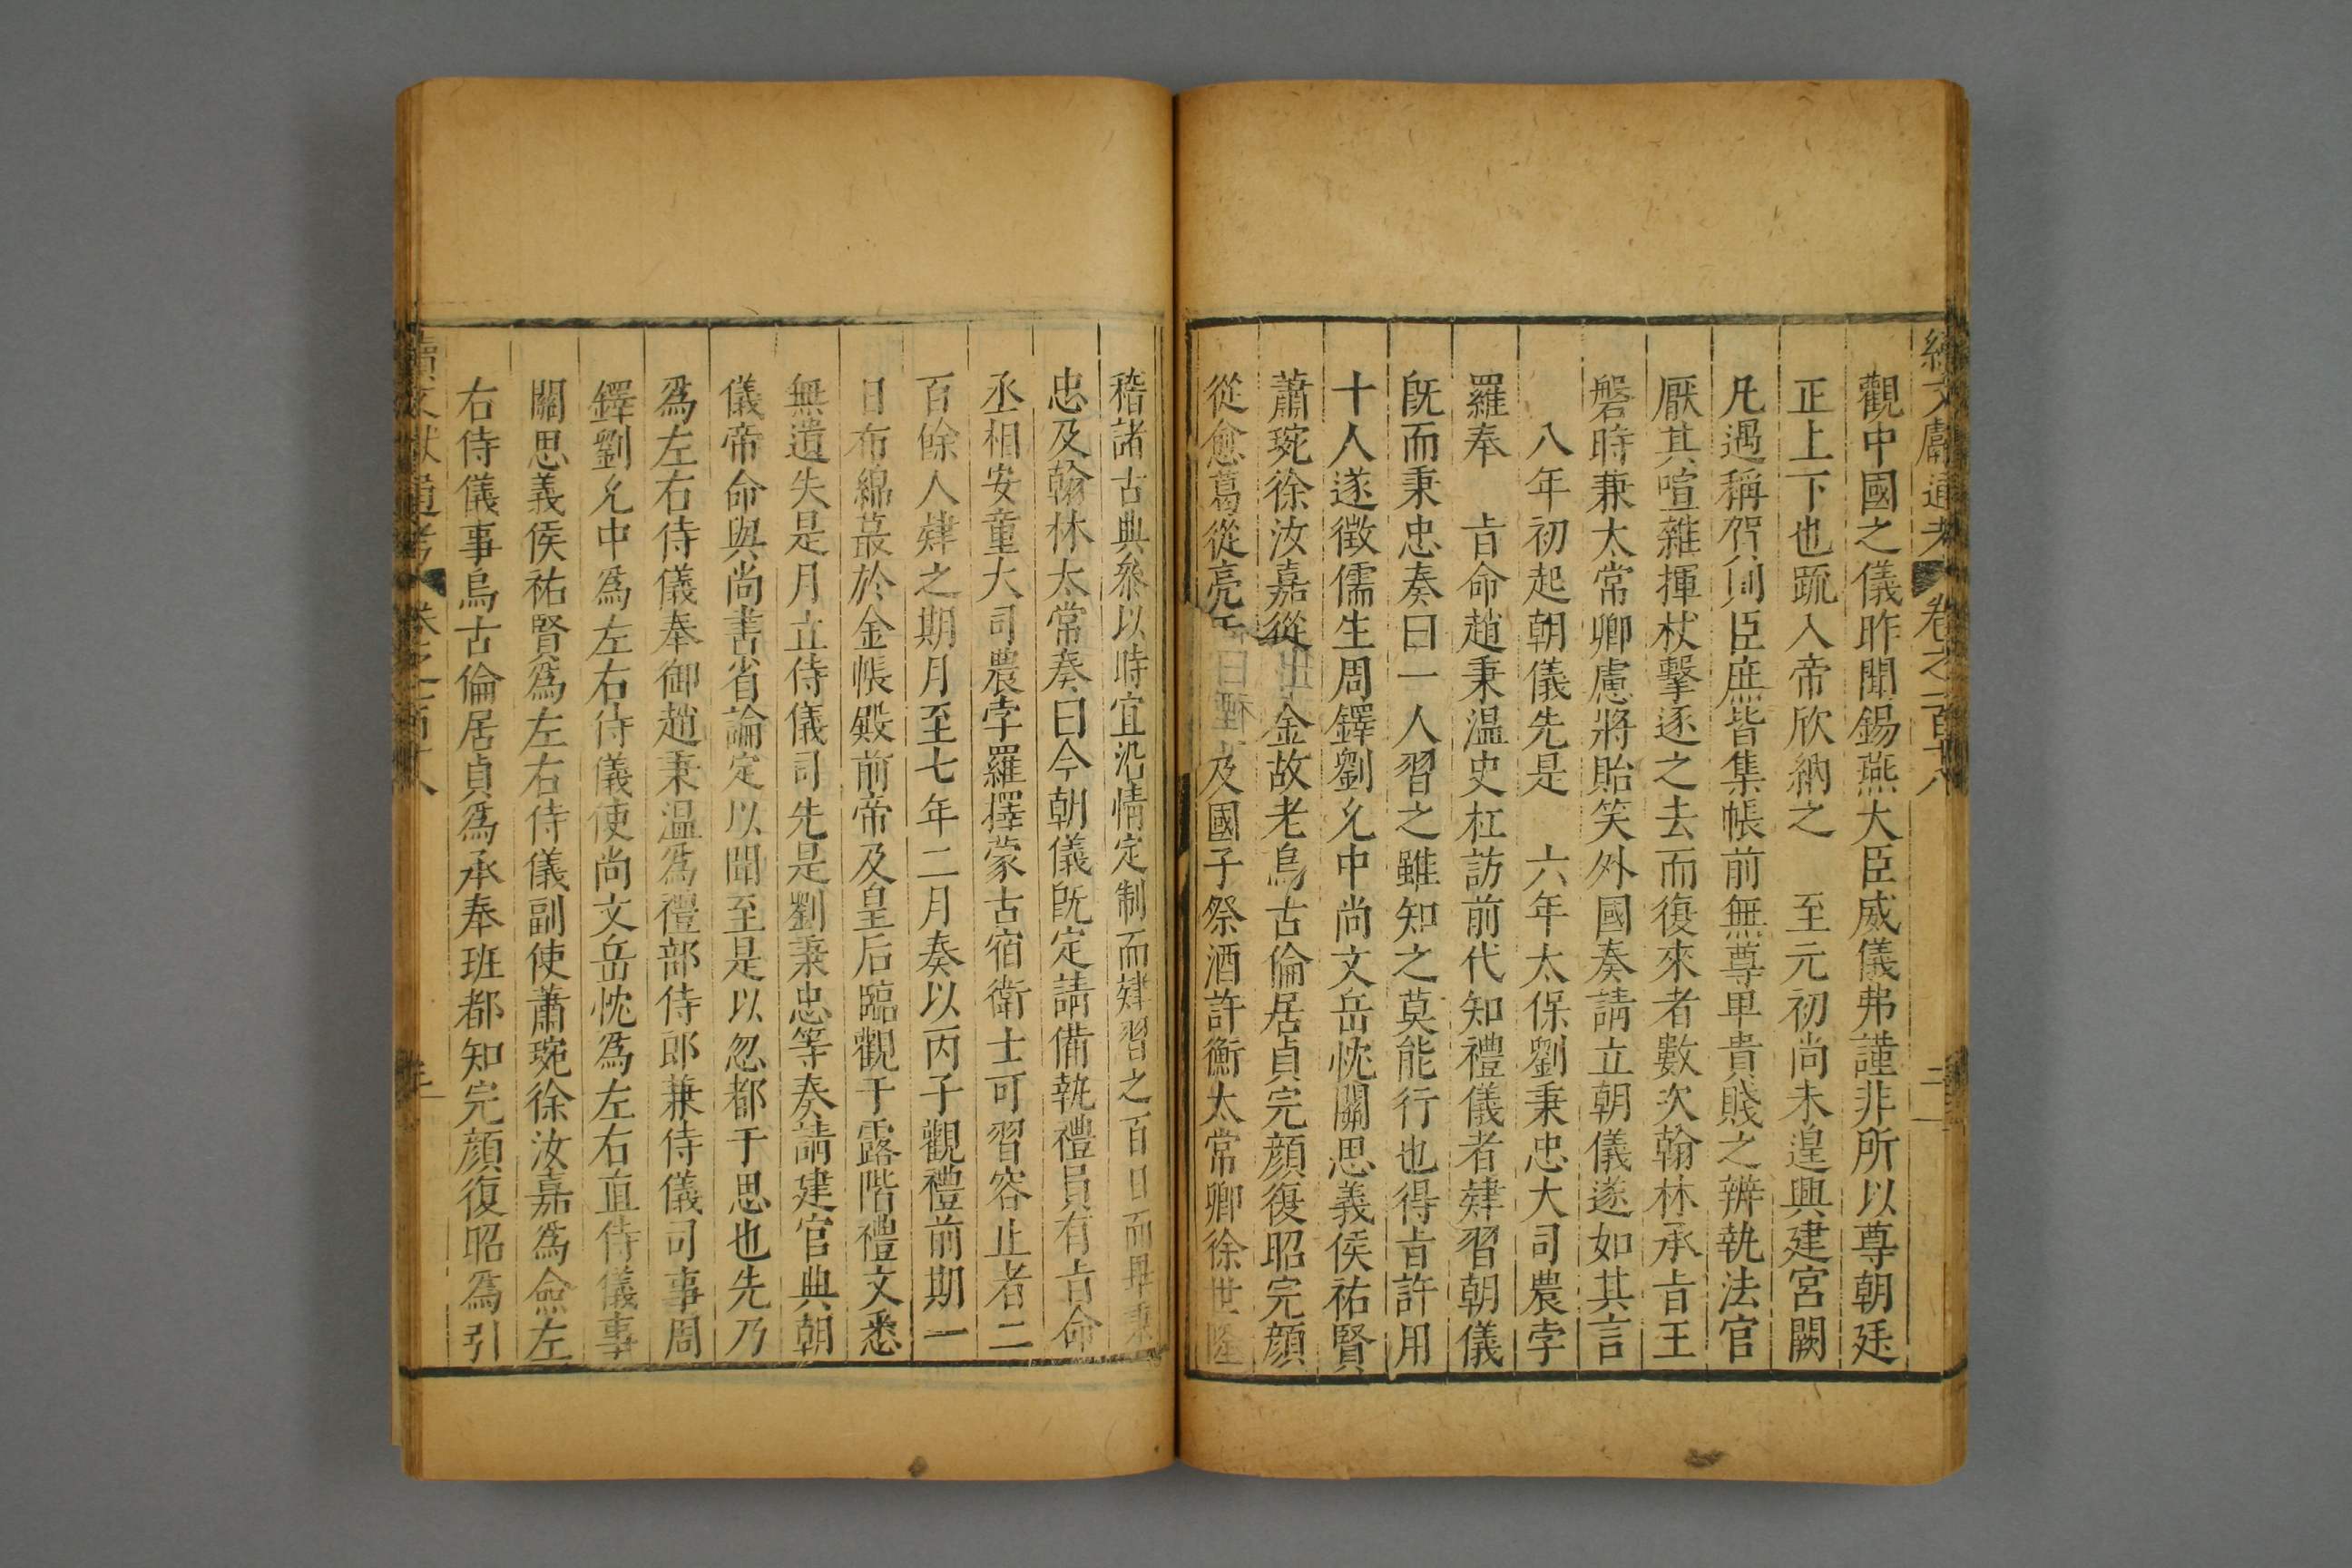 續文獻通考 卷之一百十八 二
觀中國之儀昨聞錫燕大臣威儀弗謹非所以尊朝廷
正上下也疏入帝欣納之 至元初尚未遑興建宮闕
凡遇稱賀則臣庶皆集帳前無尊卑貴賤之辨執法官
厭其喧雜揮杖擊逐之去而復來者數次翰林承㫖王
磐時兼太常卿慮將貽笑外國奏請立朝儀遂如其言
八年初起朝儀先是 六年太保劉秉忠大司農孛
羅奉 㫖命趙秉温史杠訪前代知禮儀者肄習朝儀
旣而秉忠奏曰一人習之雖知之莫能行也得㫖許用
十人遂徵儒生周鐸劉允中尚文岳忱關思義侯祐賢
蕭琬徐汝嘉從 金故老烏古倫居貞完顏復昭完顏
從愈葛從亮 及國子祭酒許衡太常卿徐世隆
稽諸古典叅以時宜沿情定制而肄習之百日而畢秉
忠及翰林太常奏曰今朝儀旣定請備執禮員有㫖命
丞相安童大司農孛羅擇蒙古宿衛士可習容止者二
百餘人肄之期月至七年二月奏以丙子觀禮前期一
日布綿蕞於金帳殿前帝及皇后臨觀于露階禮文悉
無遺失是月立侍儀司先是劉秉忠等奏請建官典朝
儀帝命與尚書省論定以聞至是以忽都于思也先乃
爲左右侍儀奉御趙秉温爲禮部侍郎兼侍儀司事周
鐸劉允中爲左右侍儀使尚文岳忱爲左右直侍儀事
關思義侯祐賢爲左右侍儀副使蕭琬徐汝嘉爲僉左
右侍儀事烏古倫居貞爲承奉班都知完顏復昭爲引
續文獻通考 卷之一百十八